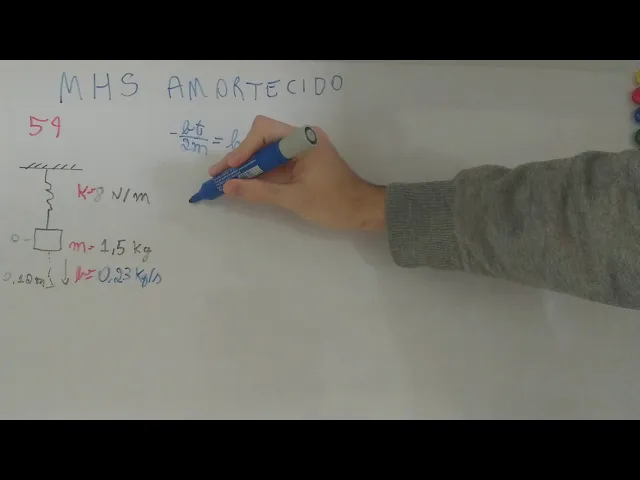 MHS AMORTECIDO
59
- bt/2m =
K=8 N/m
0
m= 1,5 kg
b= 0,23 kg/s